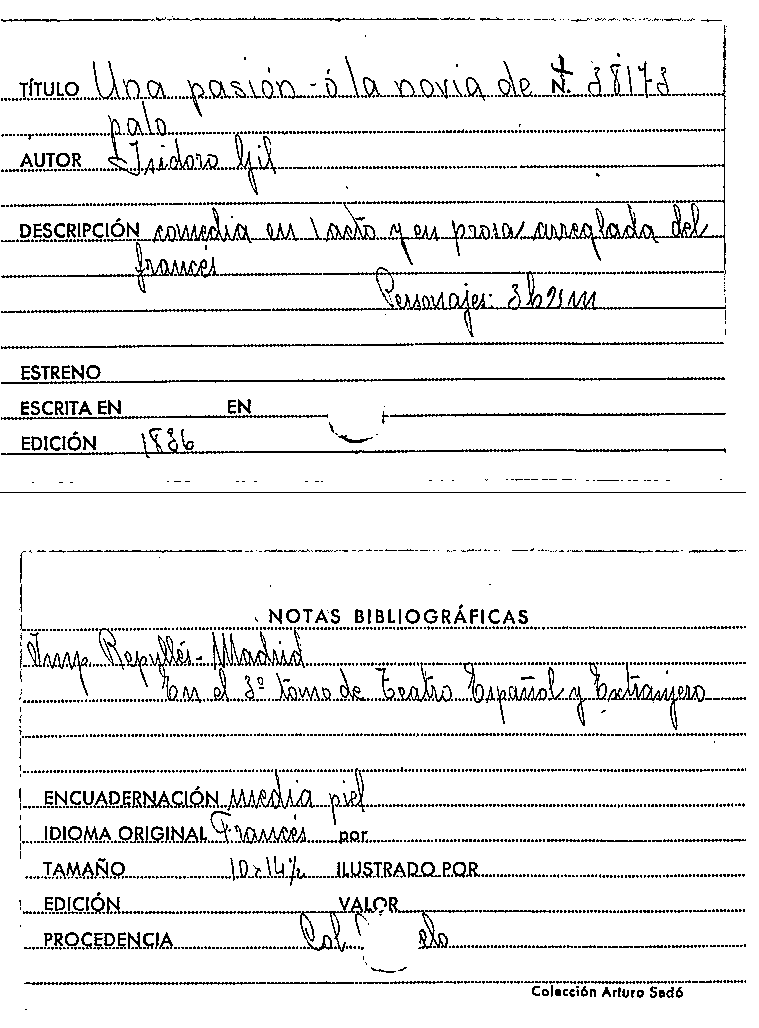 TÍTULO Una pasión - ó la novia de N. 38173
palo
AUTOR Isidoro Gil
DESCRIPCIÓN comedia en 1 acto y en prosa arreglada del
francés
Personajes: 3h 2m
ESTRENO
ESCRITA EN EN
EDICIÓN 1836
NOTAS BIBLIOGRÁFICAS
Imp. Repullés - Madrid
En el 3º tomo de Teatro Español y Extranjero
ENCUADERNACIÓN media piel
IDIOMA ORIGINAL Francés por
TAMAÑO 10x14½ ILUSTRADO POR
EDICIÓN VALOR
PROCEDENCIA Col.
Colección Arturo Sedó